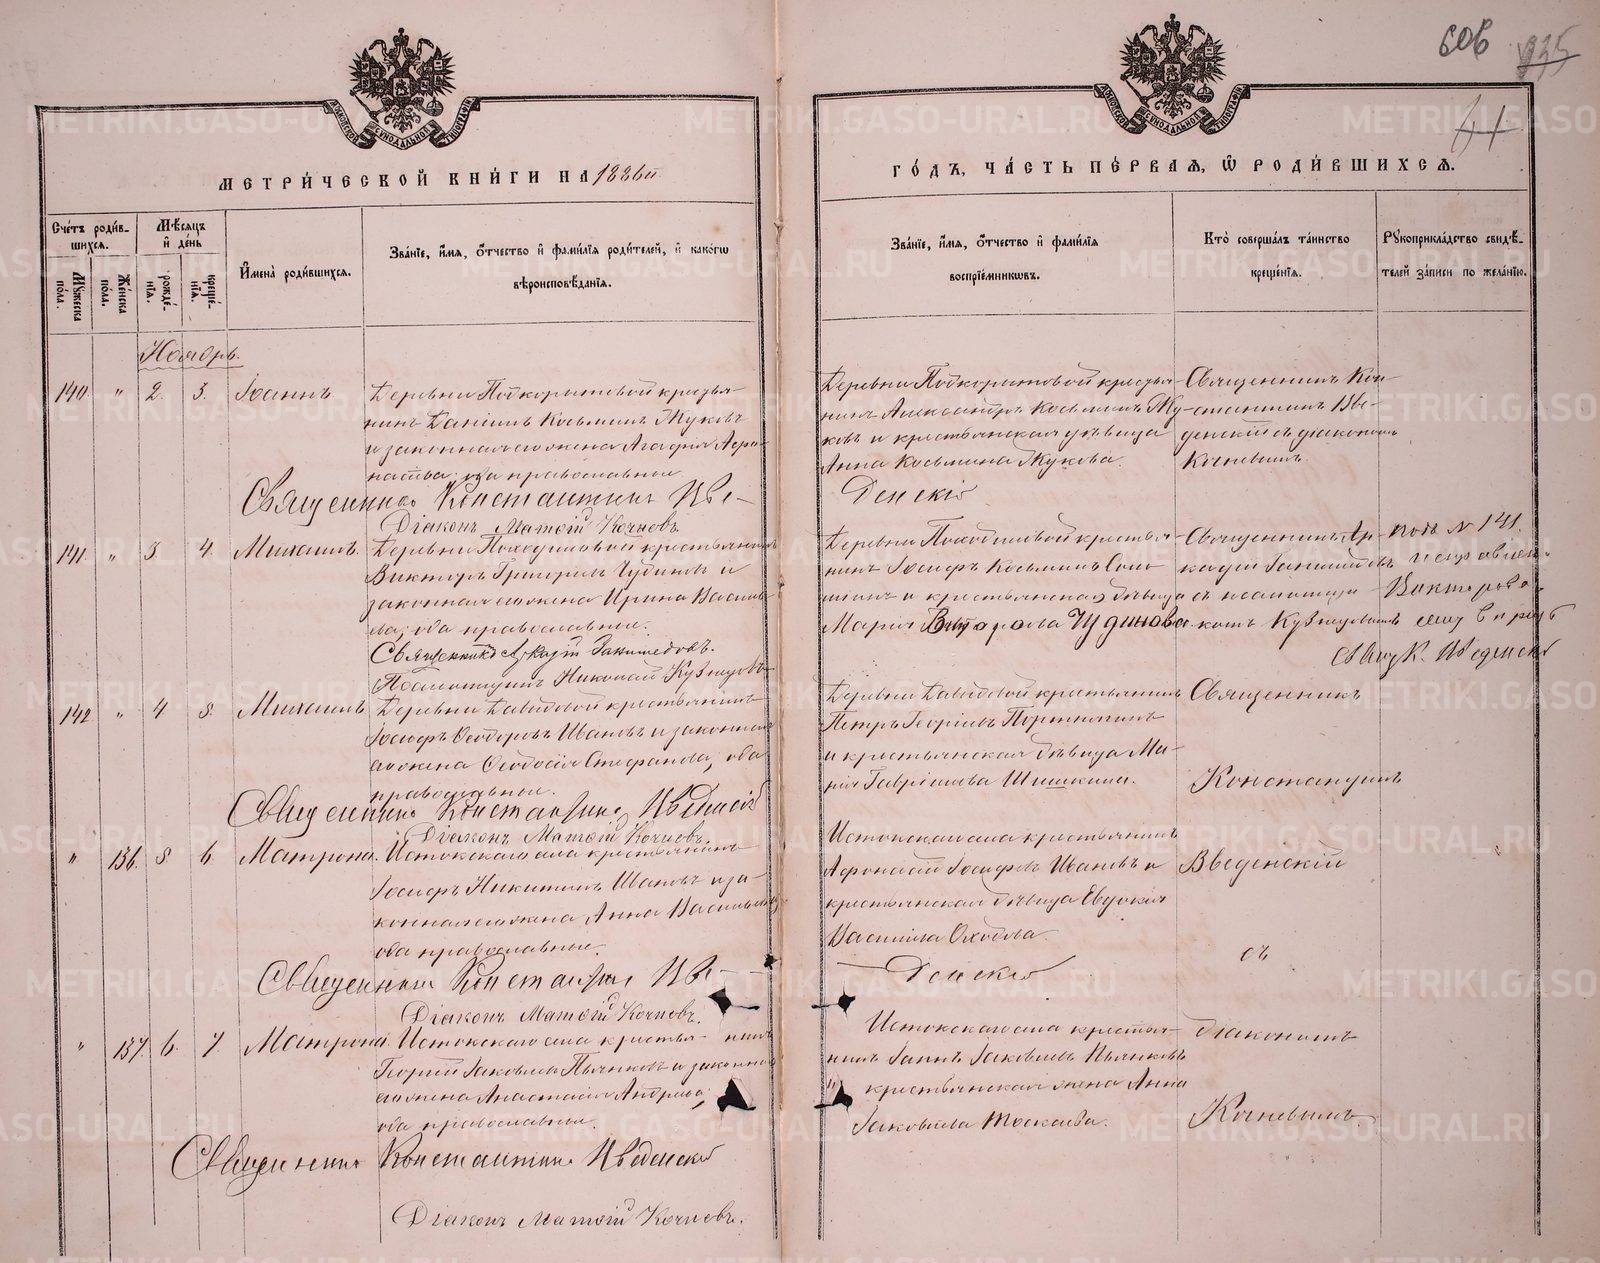 606 835
44
МЕТРИЧЕСКОЙ КНИГИ НА 1886й
ГОДЪ, ЧАСТЬ ПЕРВАЯ, Ѿ РОДИВШИХСЯ.
Счетъ родившихся.
Мужеска пола.
Женска пола.
Мѣсяцъ и день
рожденія.
крещенія.
Имена родившихся.
Званіе, имя, отчество и фамилія родителей, и какогѡ вѣроисповѣданія.
Званіе, имя, отчество и фамилія воспріемниковъ.
Кто совершалъ таинство крещенія.
Рукоприкладство свидѣтелей записи по желанію.
Ноябрь.
140. " 2. 3. Іоаннъ
Деревни Подкорытовой крестья-
нинъ Даніилъ Косьминъ Жуковъ
и законная его жена Агафія
оба православные
Деревни Подкорытовой крестья-
нинъ Александръ Косьминъ Жу-
ковъ и крестьянская дѣвица
Анна Косьмина Жукова.
Священникъ Кон-
стантинъ Вве-
денскій съ діакономъ
Кочневымъ.
Священникъ Константинъ Вве-
денскій
Діаконъ Матѳій Кочневъ.
141. " 3 4. Михаилъ.
Деревни крестьянинъ
Викторъ Григорьевъ Чудиновъ и
законная его жена Ирина Василье-
ва; оба православные.
Деревни крестья-
нинъ Іосифъ Косьминъ
и крестьянская дѣвица
Марія Викторова Чудинова.
Священникъ Ар-
кадій
съ псаломщи-
комъ Кузнецовымъ
подъ № 141.
исправлен-
Викторова
свящ К. Введенскій
Священникъ Аркадій
Псаломщикъ Николай Кузнецовъ
142 " 4 8. Михаилъ
Деревни Давыдовой крестьянинъ
Іосифъ Ѳеодоровъ Ивановъ и законная
его жена Ѳеодосія Стефанова, оба
православные.
Деревни Давыдовой крестьянинъ
Петръ Георгіевъ
и крестьянская дѣвица Ма-
рія Гавріилова Шишкина.
Священникъ
Константинъ
Священникъ Константинъ Введенскій
Діаконъ Матѳій Кочневъ.
" 136. 5 6. Матрона.
Истокскаго села крестьянинъ
Іосифъ Никитинъ Ивановъ и за-
конная его жена Анна Васильева
оба православные.
Истокскаго села крестьянинъ
Аѳонасій Іосифовъ Ивановъ и
крестьянская дѣвица Евдокія
Васильева
Введенскій
съ
Священникъ Константинъ Вве-
денскій
Діаконъ Матѳій Кочневъ.
" 137. 6. 7. Матрона.
Истокскаго села крестья- нинъ
Георгій Іаковлевъ Пьянковъ и законная
его жена Анастасія Андреева;
оба православные.
Истокскаго села крестья-
нинъ Іаннъ Іаковлевъ Пьянковъ
и крестьянская жена Анна
Іаковлева
діакономъ
Кочневымъ.
Священникъ Константинъ Введенскій
Діаконъ Матѳій Кочневъ.
METRIKI.GASO-URAL.RU